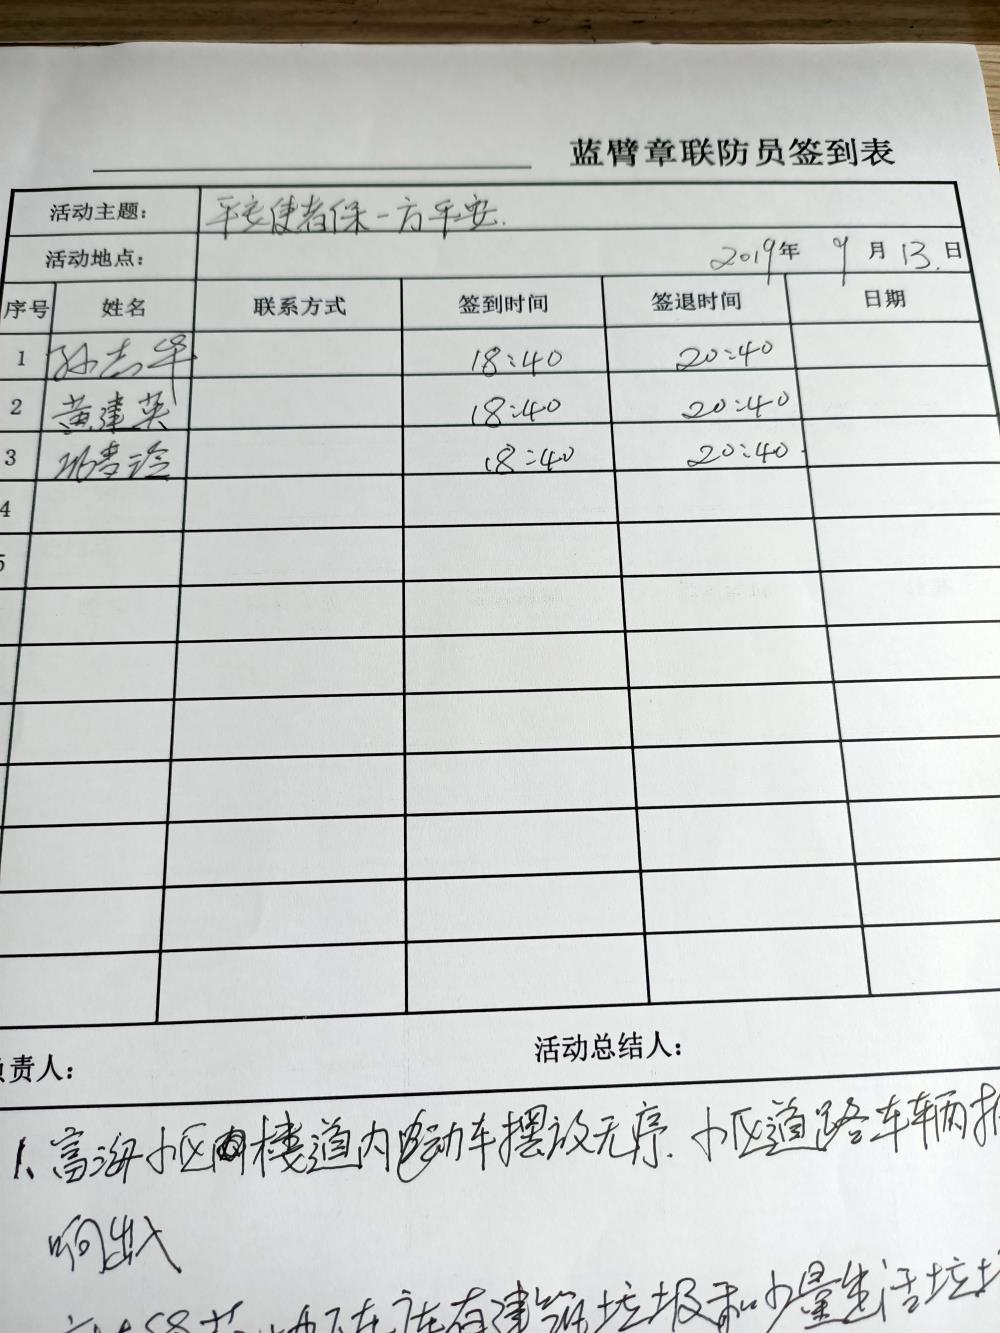 蓝臂章联防员签到表
活动主题： 平安使者保一方平安.
活动地点： 2019年 9月13.日
序号 姓名 联系方式 签到时间 签退时间 日期
1 孙志华 18:40 20:40
2 黄建英 18:40 20:40
3 18:40 20:40.
4
5
责人： 活动总结人：
1、富海小区 楼道内电动车摆放无序.小区道路车辆
响出入
存在有建筑垃圾和少量生活垃圾